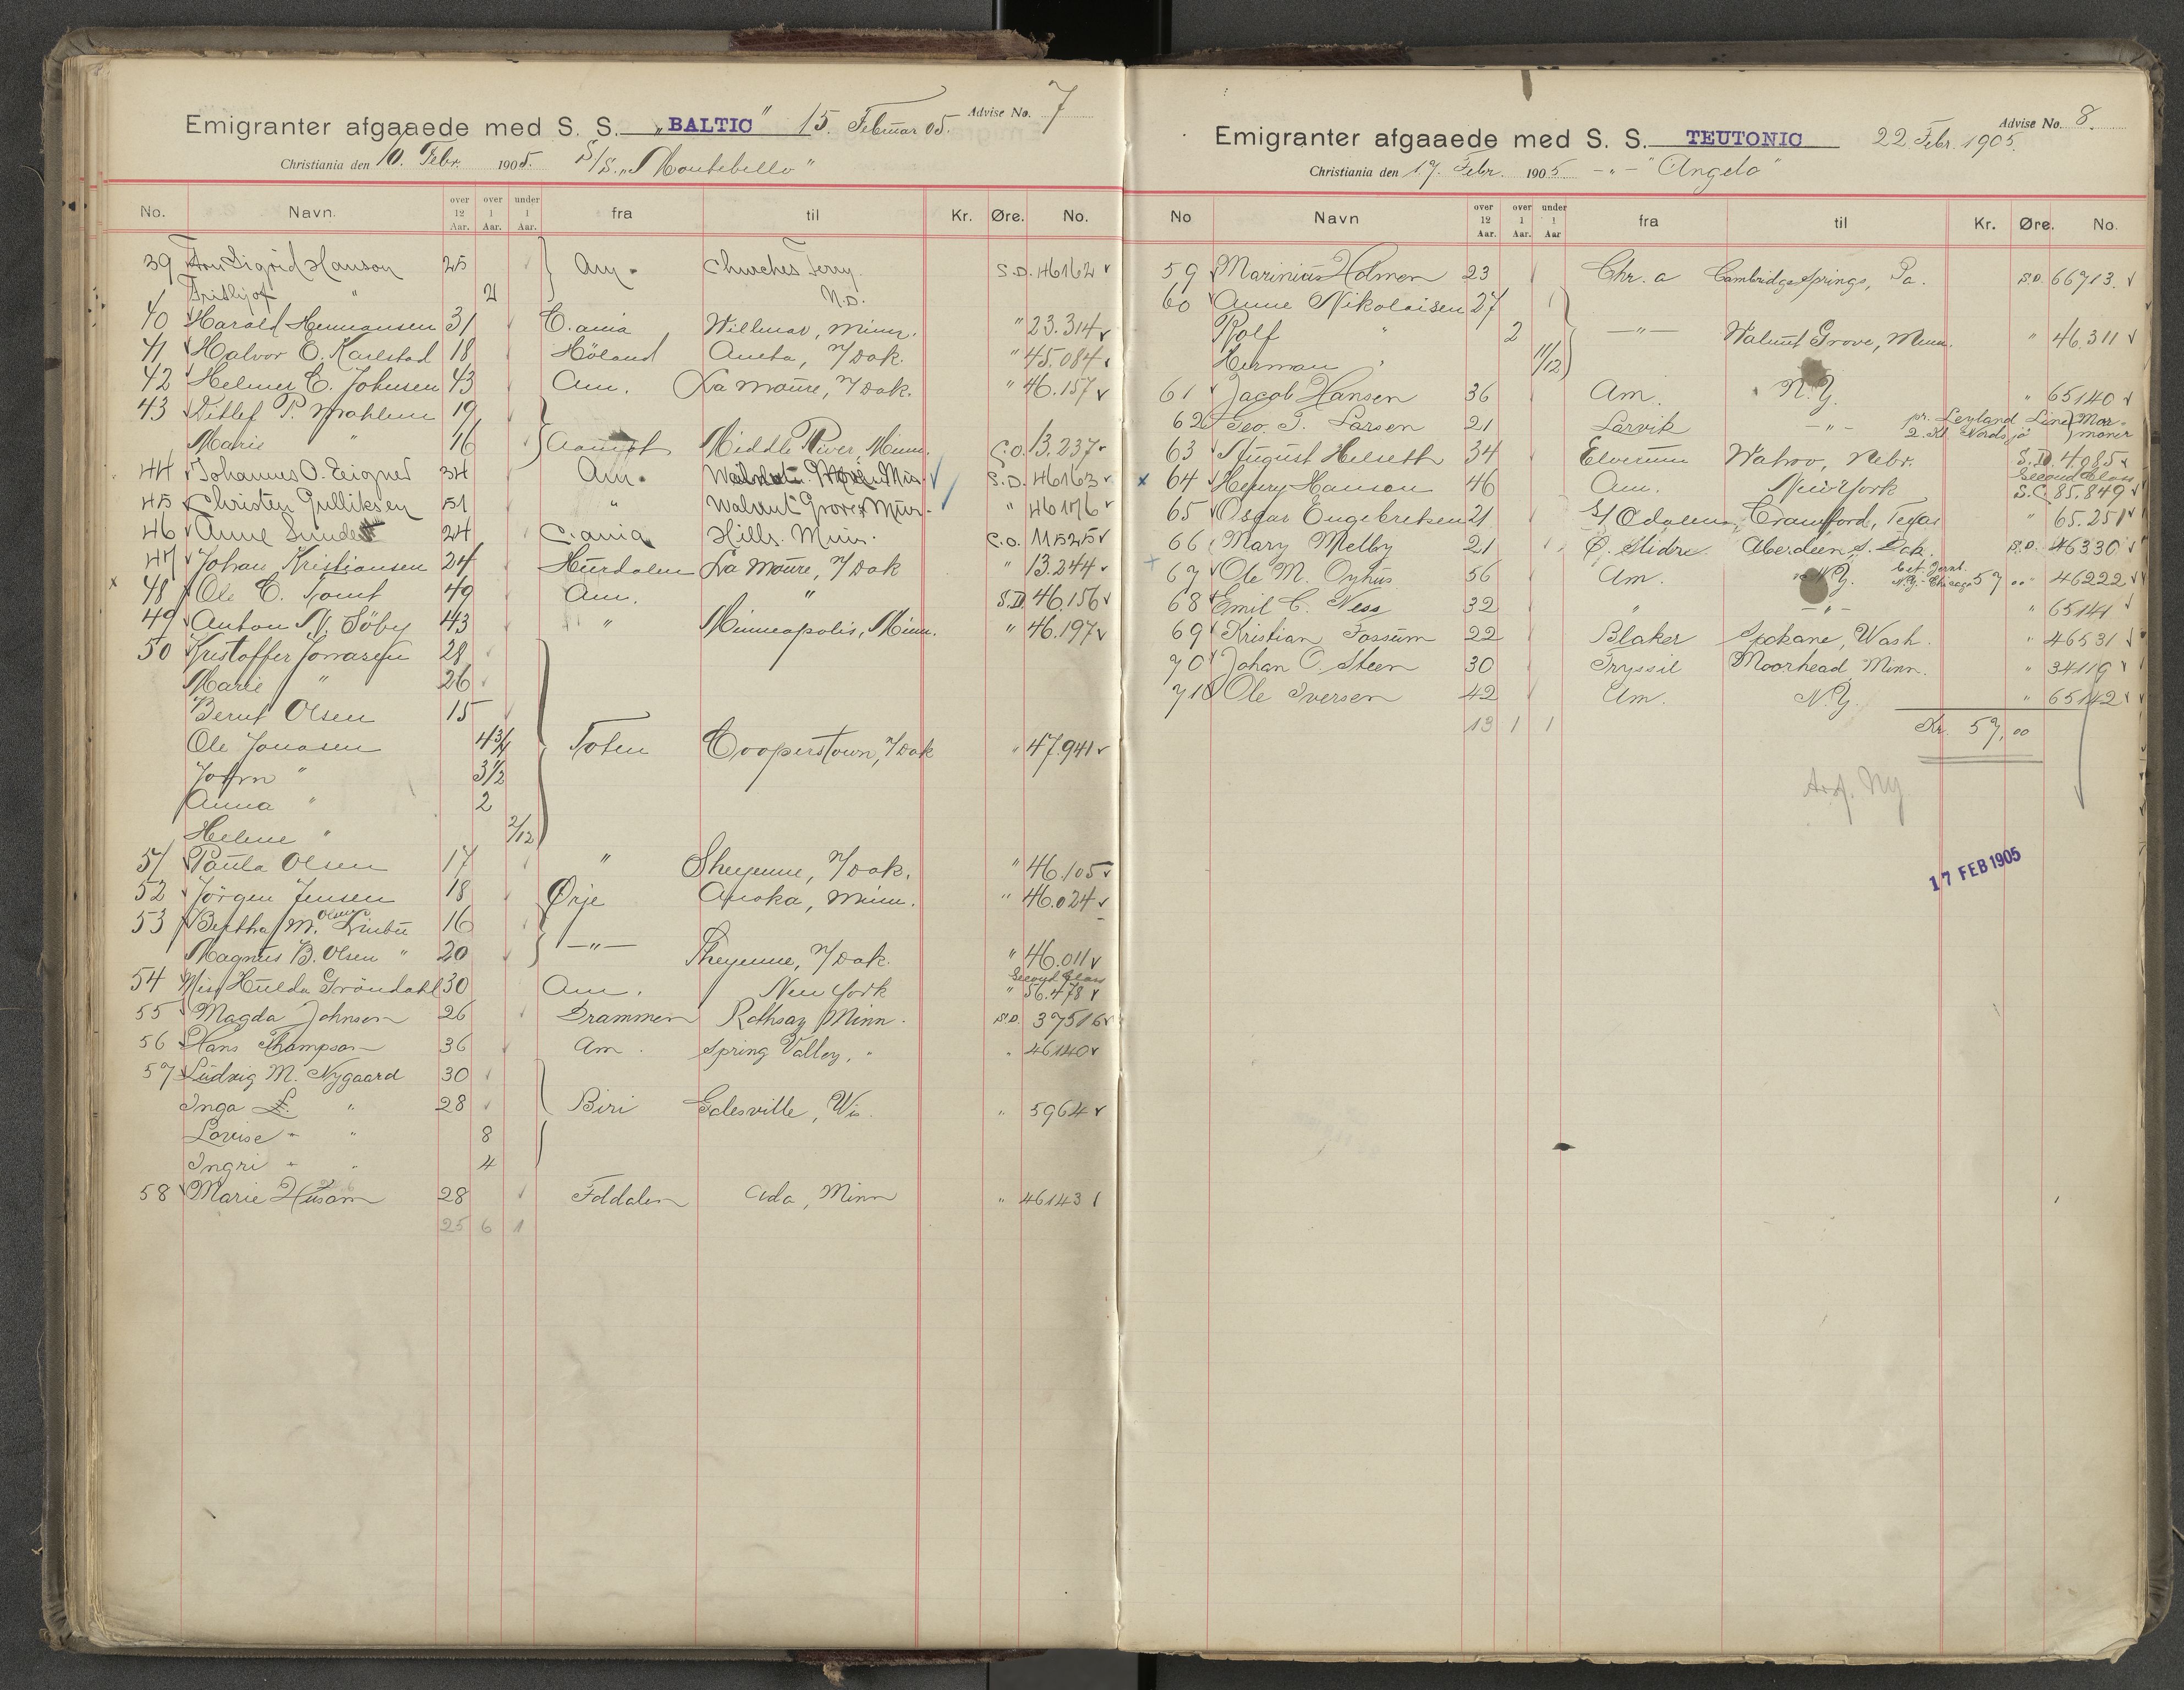 Emigranter afgaaede med S. S. „BALTIC" 15. Februar 05. Advise No. 7
Christiania den 10. Febr. 1905. S/S. „Montebello"
No. Navn. over 12 Aar. over 1 Aar. under 1 Aar. fra til Kr. Øre. No.
39 Fru Sigrid Hanson 25 Am. Churches Ferry S.D. 46162
Frithjof " 2 N.D.
40 Harald Hermansen 31 C.ania Willmar, Minn. " 23.314
41 Halvor O. Karlstad 18 Höland Aneta, N/Dak. " 45.084
42 Helmer C. Johnsen 43 Am. La Moure, N/Dak. " 46.157
43 Ditlef P. 19
Marie " 16 Middle River, Minn. C.O. 13.237
44 Johannes O. Eigned 34 Am. S.D. 46163
45 Christen Gulliksen 51 " Walnut Grove Minn. " 46176
46 Anne Sunde 24 C.ania Hills. Minn. C.O. 11525
47 Johan Kristiansen 24 Hurdalen La Moure, N/Dak " 13.244
x 48 Ole C. Tomt 49 Am. " S.D. 46.156
49 Anton N. Söby 43 " Minneapolis, Minn. " 46.197
50 Kristoffer Jonasen 28
Marie " 26
Bernt Olsen 15
Ole Jonasen 4 3/4 Toten Cooperstown, N/Dak " 47.941
John " 3 1/2
Anna " 2
Helene " 2/12
51 Paula Olsen 17 " Sheyenne, N/Dak. " 46.105
52 Jörgen Jensen 18 Ørje Anoka, Minn. " 46.024
53 Bertha M. Olsen 16
Magnus B. Olsen " 20 —"— Sheyenne, N/Dak. " 46.011
54 Miss Hulda Gröndahl 30 Am. New York Second Class " 56.478
55 Magda Johnson 26 Drammen Rothsay Minn. S.D. 37516
56 Hans Thompson 36 Am. Spring Valley, " " 46140
57 Ludvig M. Nygaard 30
Inga L. " 28 Biri Galesville, Wis. " 5964
Lovise " " 8
Ingri " " 4
58 Marie Husom 28 Foldalen Ada, Minn " 46143
25 6 1
Emigranter afgaaede med S. S. TEUTONIC 22 Febr. 1905. Advise No. 8.
Christiania den 17. Febr. 1905 —"— "Angelo"
No Navn over 12 Aar. over 1 Aar. under 1 Aar fra til Kr. Øre. No.
59 Marinius Holmen 23 Chr.a Cambridge Springs, Pa. S.D. 66713.
60 Anne Nikolaisen 27
Rolf " 2 —"— Walnut Grove, Minn. " 46.311
Herman " 11/12
61 Jacob Hansen 36 Am. N.Y. " 65140
62 Geo. T. Larsen 21 Larvik —"— pr. Leyland Line } Mor-
2. Kl. Nordsjö } moner
63 August Helseth 34 Elverum Wahoo, Nebr. S.D. 4.085
x 64 Henry Hansen 46 Am. New York Second Class S.C. 85.849
65 Oscar Engebretsen 21 S/Odalen, Crawford, Texas " 65.251
66 Mary Melby 21 Ø. Slidre Aberdeen S. Dak. S.D. 46330
67 Ole M. Oyhus 56 Am. N.Y. bet. Jernb. N.Y.-Chicago 57 00 " 46222
68 Emil C. Ness 32 " —"— " 65141
69 Kristian Fossum 22 Blaker Spokane, Wash. " 46531
70 Johan O. Steen 30 Tryssil Moorhead, Minn. " 34119
71 Ole Iversen 42 Am. N.Y. " 65142
13 1 1 Kr. 57,00
17 FEB 1905